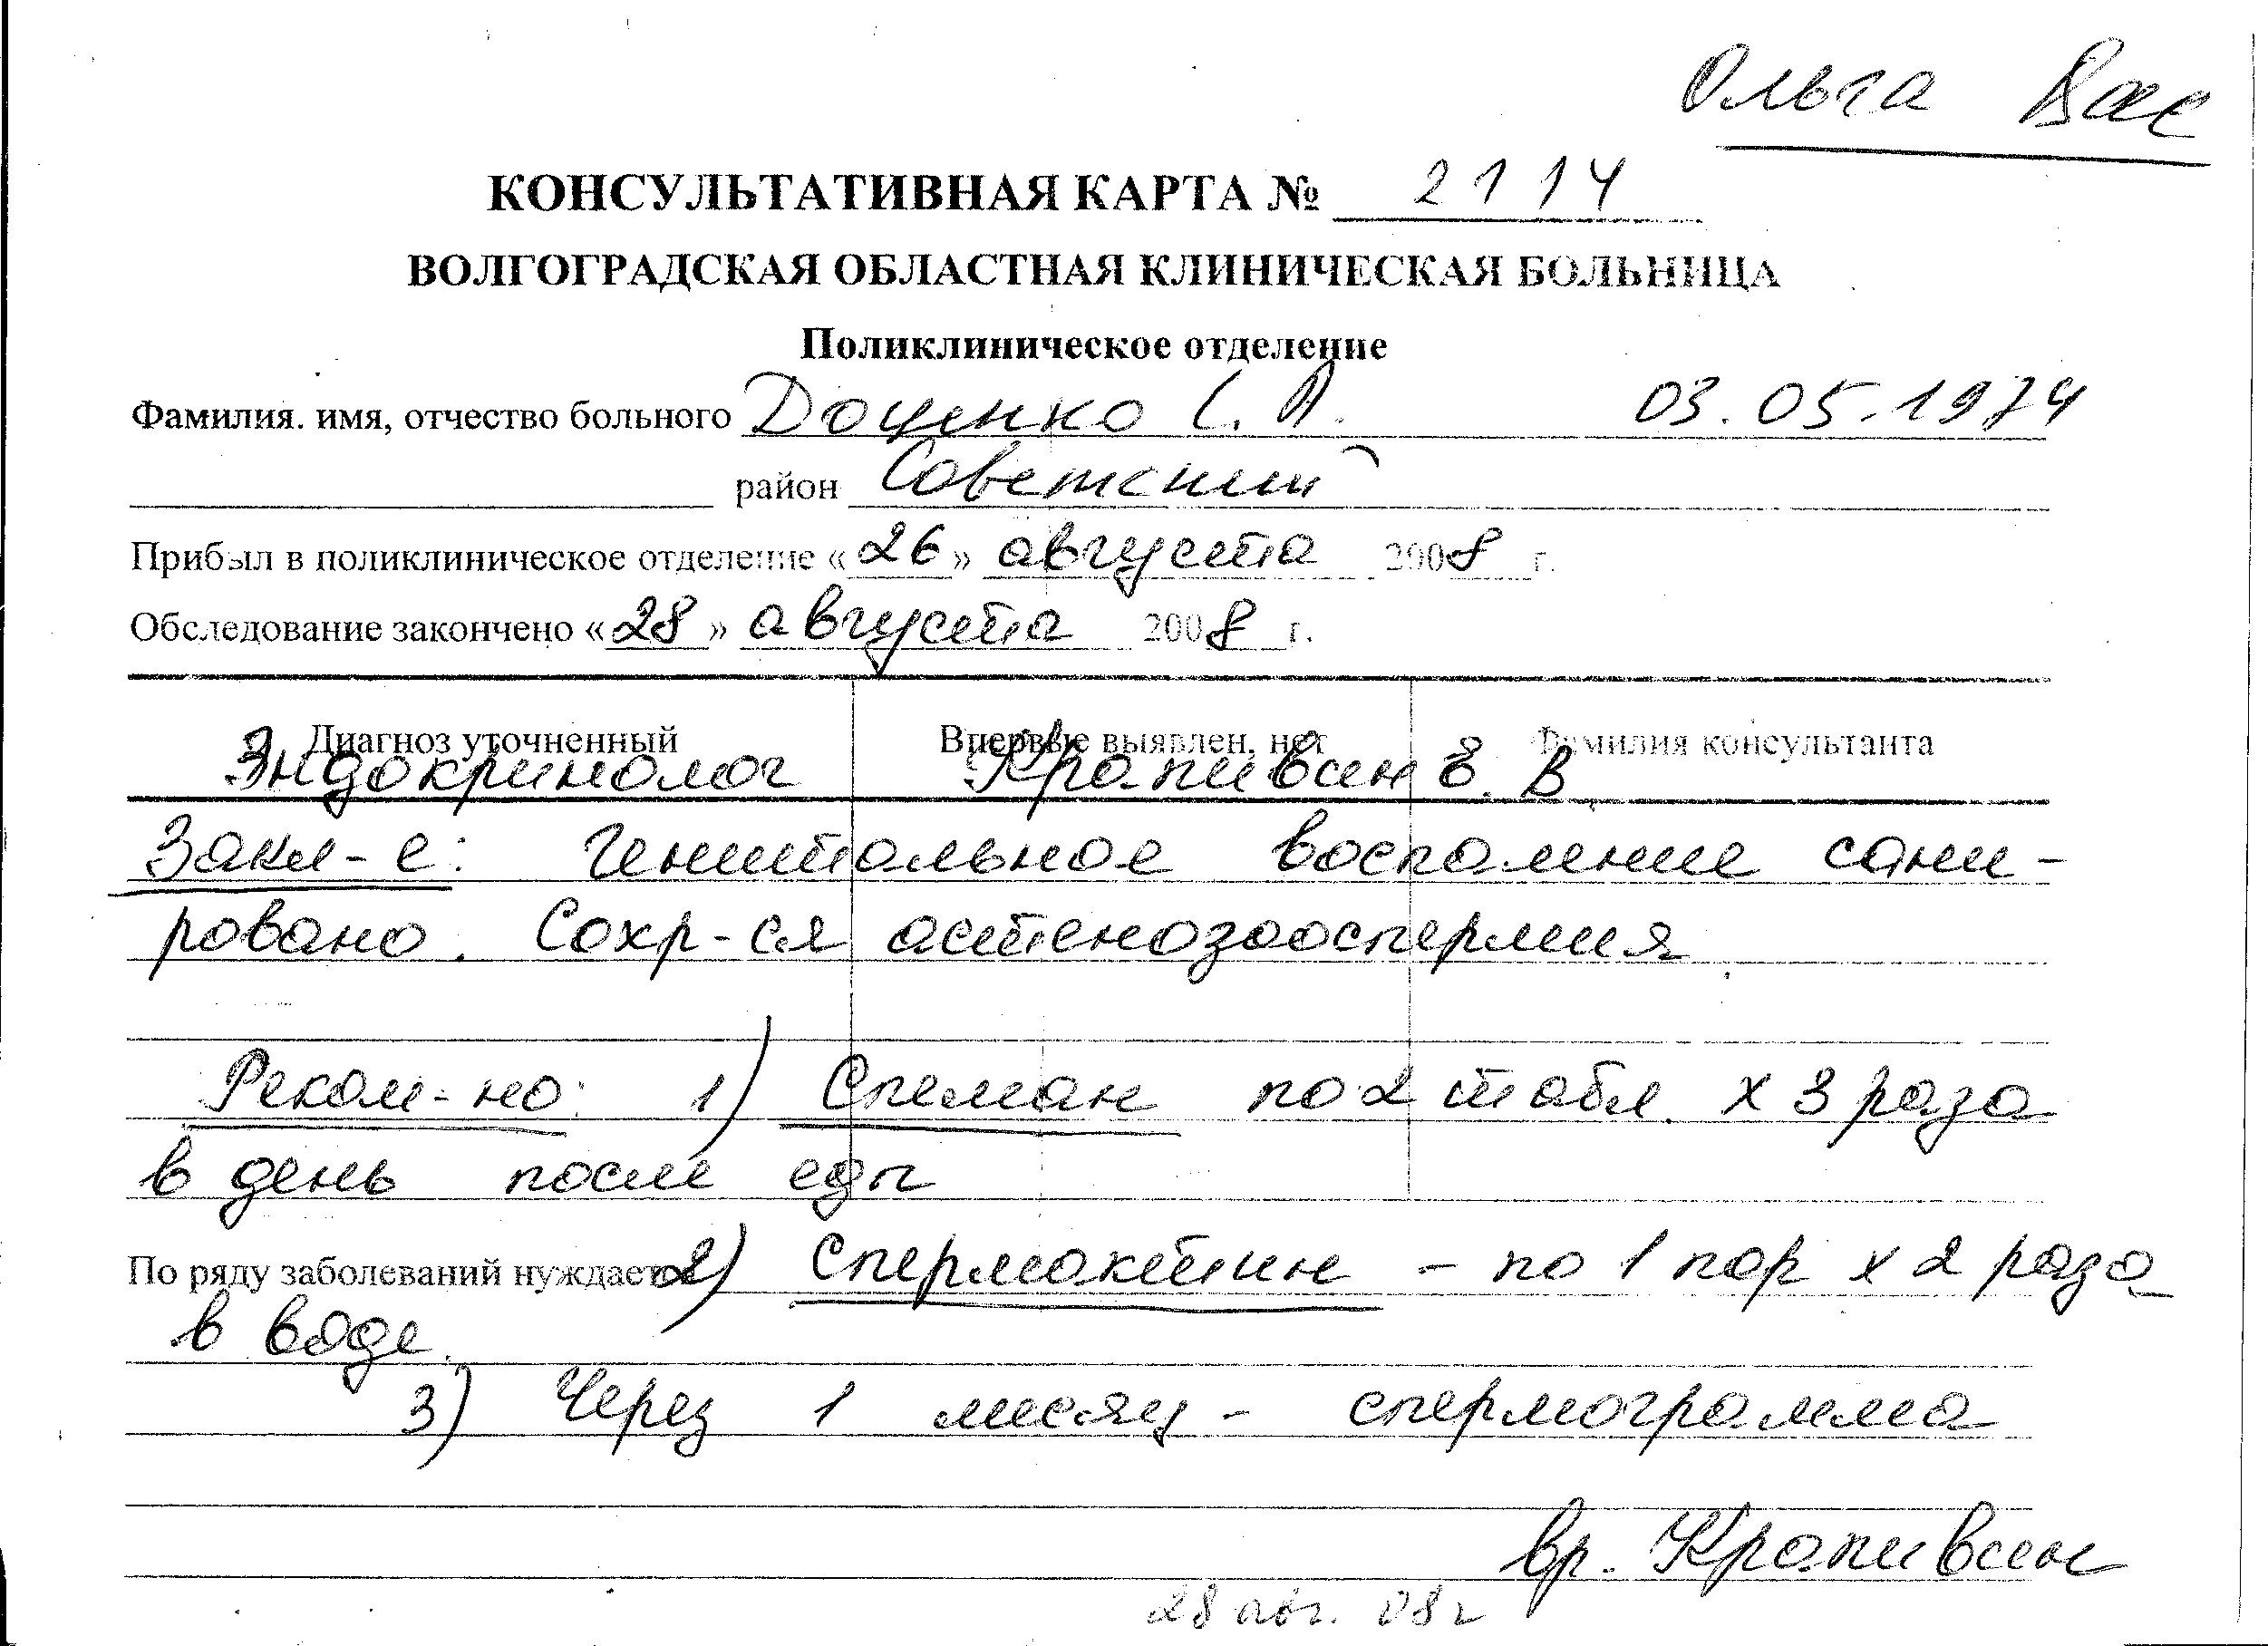 Ольга Вас
КОНСУЛЬТАТИВНАЯ КАРТА № 2114
ВОЛГОГРАДСКАЯ ОБЛАСТНАЯ КЛИНИЧЕСКАЯ БОЛЬНИЦА
Поликлиническое отделение
Фамилия. имя, отчество больного Доценко С. А. 03.05.1974
район Советский
Прибыл в поликлиническое отделение «26» августа 2008 г.
Обследование закончено «28» августа 2008 г.
Диагноз уточненный Впервые выявлен, нет Фамилия консультанта
Эндокринолог Крапивин Е. В
Закл-е: Генитальное воспаление сани-
ровано. Сохр-ся астенозооспермия
Реком-но: 1) Спеман по 2 табл. х 3 раза
в день после еды
По ряду заболеваний нуждается 2) Спермактин – по 1 пор х 2 раза
в воде.
3) Через 1 месяц – спермограмма
вр. Крапивин
28 авг. 08г